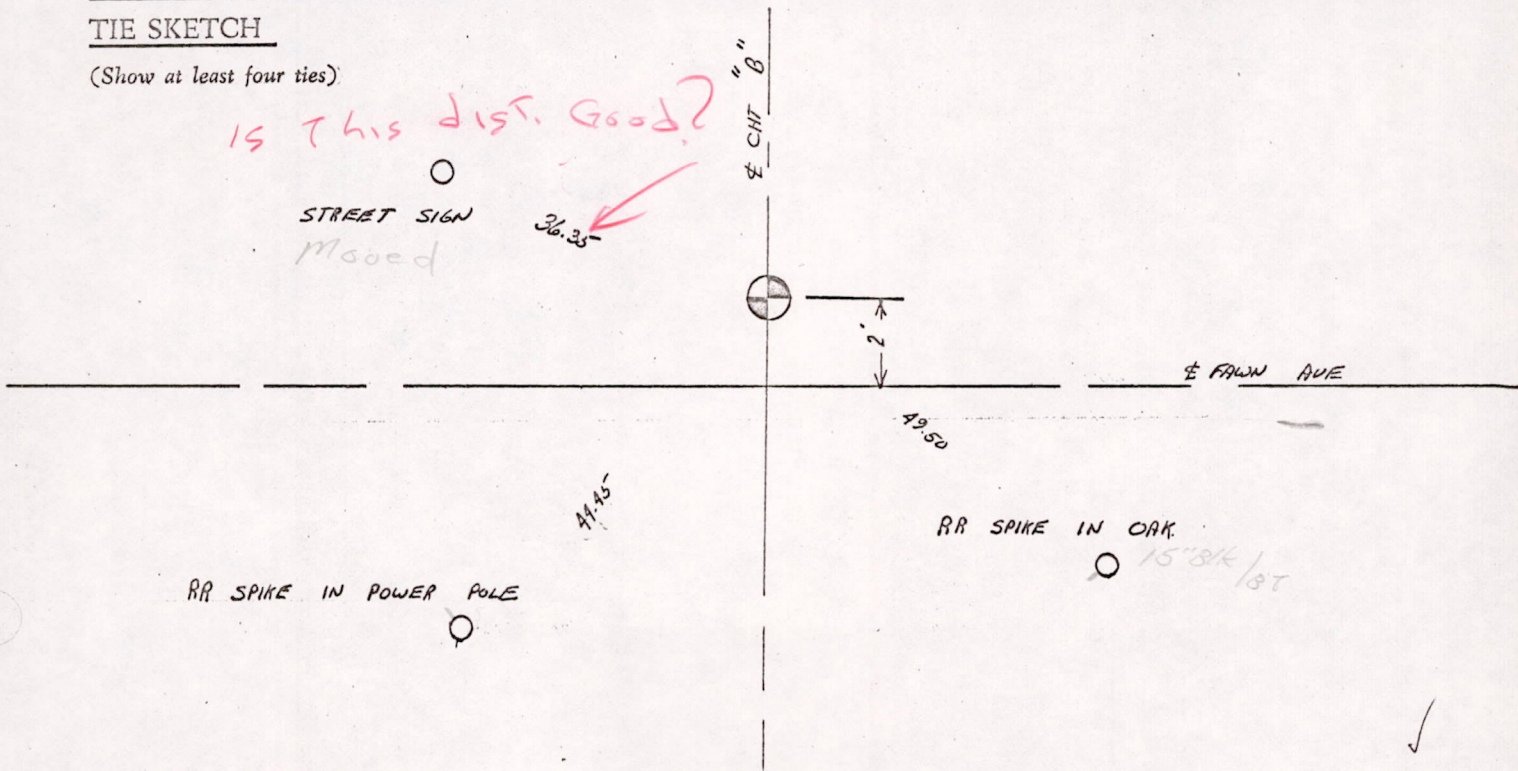 TIE SKETCH
(Show at least four ties)
Is This dist. Good?
℄ CHT "B"
STREET SIGN
36.35
Moved
2'
℄ FAWN AVE
49.50
RR SPIKE IN OAK
15" Blk/BT
RR SPIKE IN POWER POLE